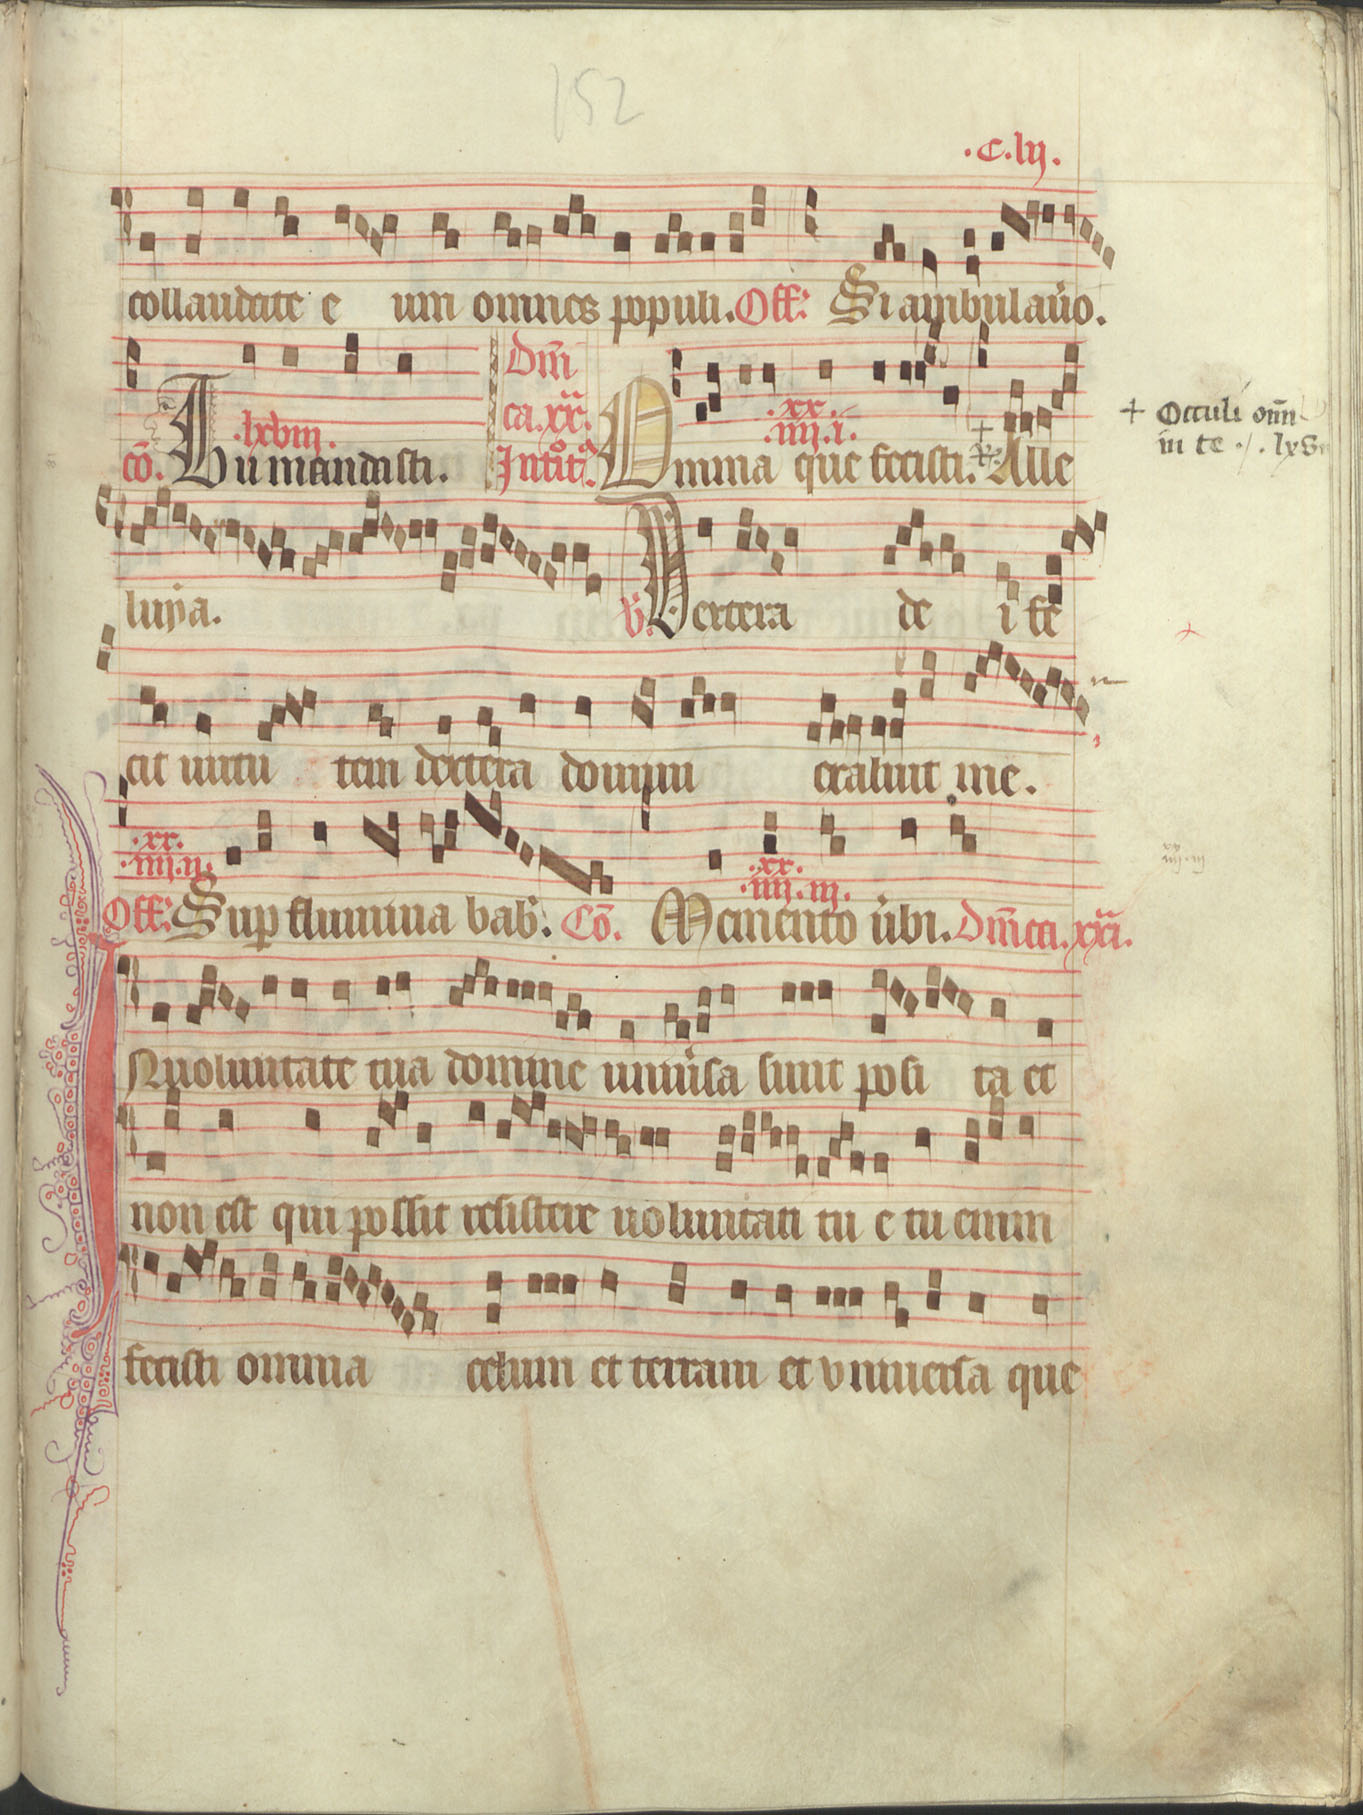 152
.c.lij.
collaudate e um omnes populi. Off: Si ambulauo.
Dm̄i
ca. xx.
.lxviij. .xx.
.iiij.i.
cō. Tu mandasti. Introit. Omnia que fecisti. Alle
+ Occuli om̄
in te
luya. V. Dextera de i fe
cit uirtu tem dextera domini exaltauit me.
.xx. .xx.
.iiij.ii. .iiij.iij.
Off: Sup flumina bab. Cō. Memento ubi. Dm̄ica. xxi.
IN uoluntate tua domine uniusa sunt posi ta et
non est qui possit resistere uoluntati tu e tu enim
fecisti omnia celum et terram et vniuersa que